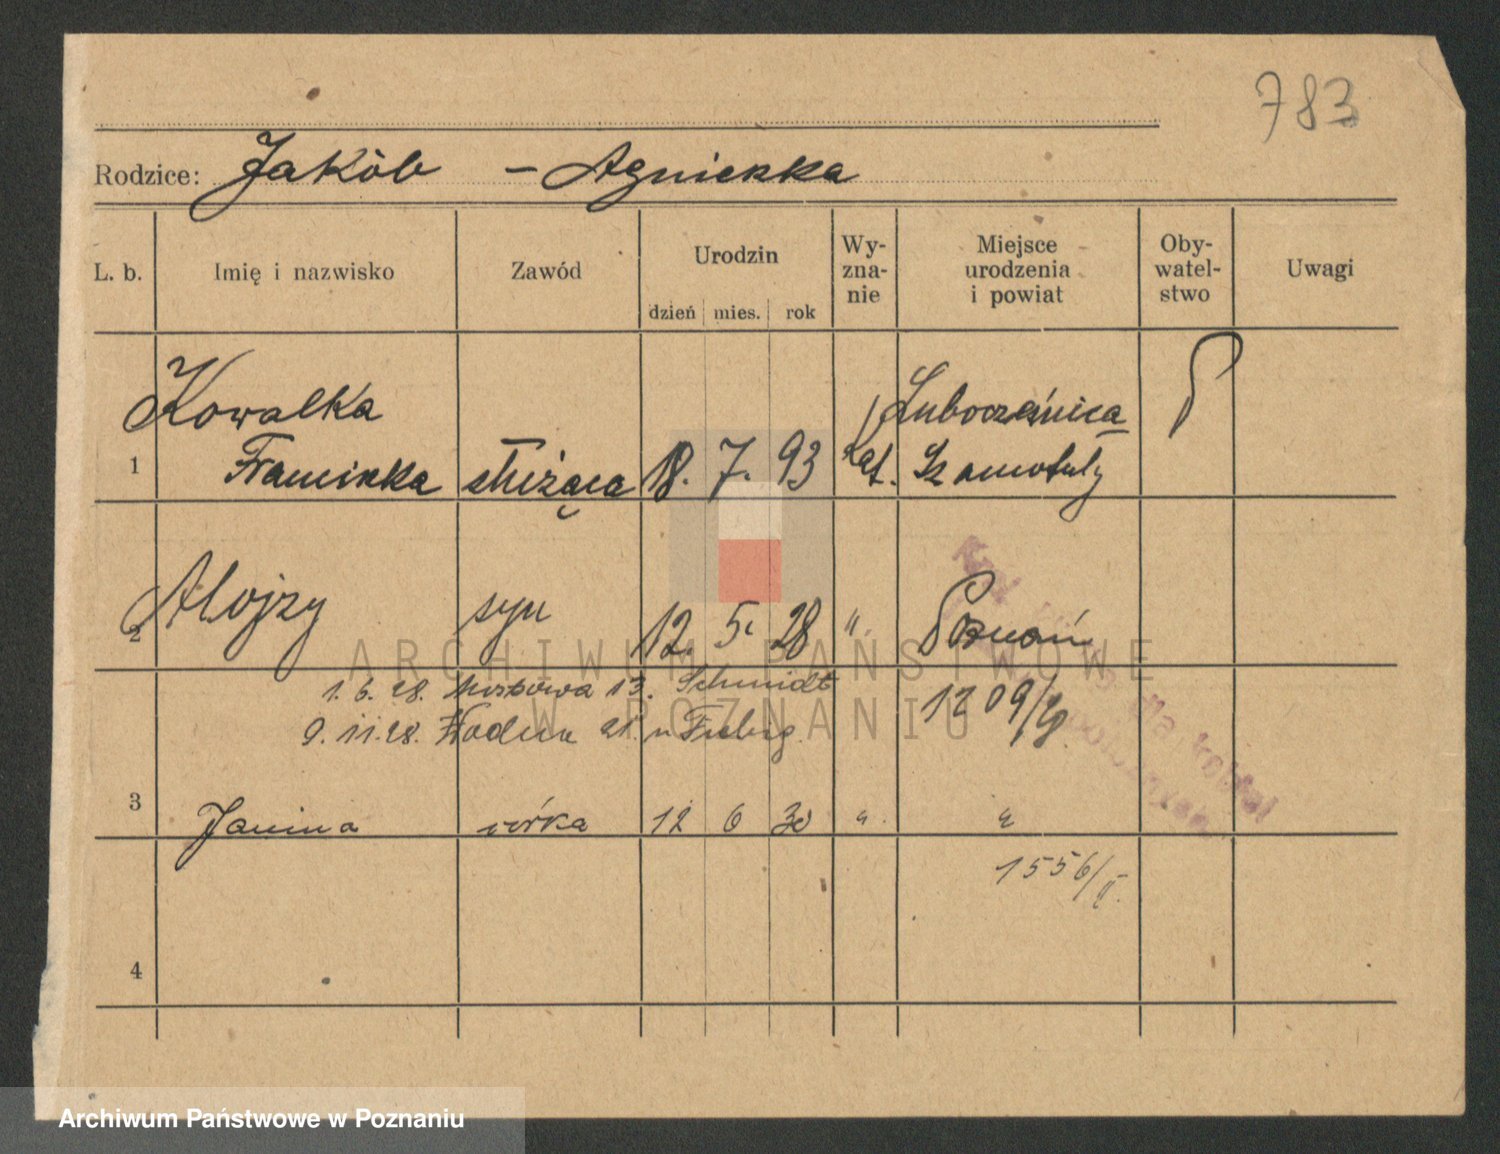 783
Rodzice: Jakób – Agnieszka
L. b. Imię i nazwisko Zawód Urodzin dzień mies. rok Wy-zna-nie Miejsce urodzenia i powiat Oby-watel-stwo Uwagi
Kowalka Lubocześnica P
1 Franciszka służąca 18. 7. 93 kat. Szamotuły
2 Alojzy syn 12. 5. 28 " Poznań
1.6.28. Mostowa 13. Schmidt 1209/
9.11.28. Wodna 21. u
3 Janina córka 12 6 30 " "
1556/II.
4
ARCHIWUM PAŃSTWOWE
W POZNANIU
Archiwum Państwowe w Poznaniu